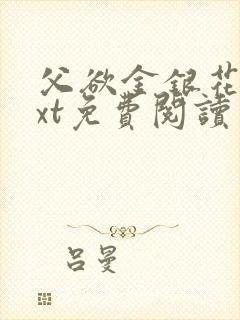 父欲金银花
xt免費閱讀
吕曼